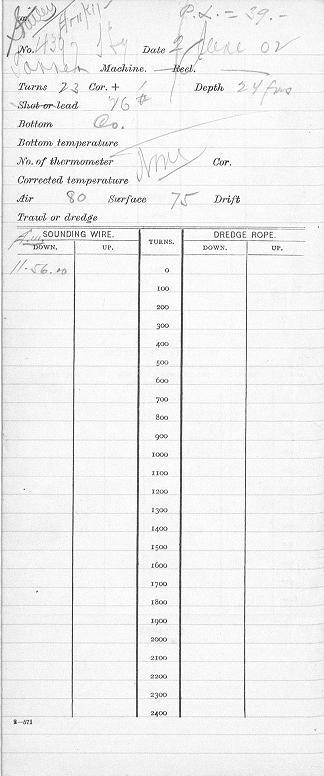 P. L. = 39. -
No. 4397 Date 2 June 02
Tanner Machine. Reel.
Turns 23 Cor. + 1 Depth 24 fms
Shot or lead 76 #
Bottom Co.
Bottom temperature
No. of thermometer None Cor.
Corrected temperature
Air 80 Surface 75 Drift
Trawl or dredge
SOUNDING WIRE. TURNS. DREDGE ROPE.
DOWN. UP. DOWN. UP.
11-56.00 0
100
200
300
400
500
600
700
800
900
1000
1100
1200
1300
1400
1500
1600
1700
1800
1900
2000
2100
2200
2300
2400
2—571